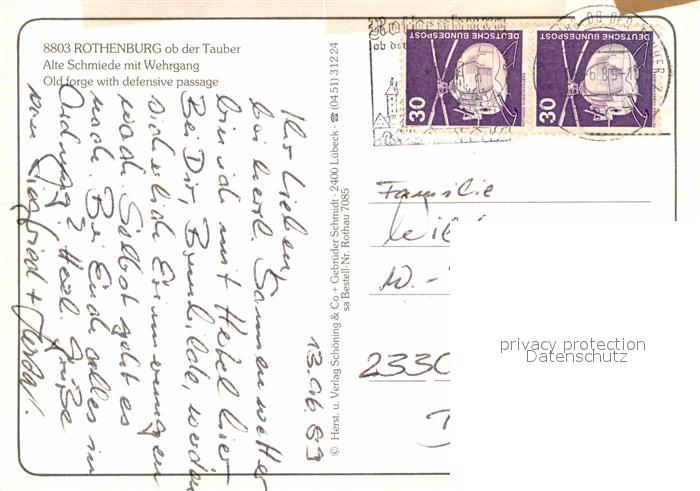 8803 ROTHENBURG ob der Tauber
Alte Schmiede mit Wehrgang
Old forge with defensive passage
13.06.89
Ihr Lieben,
bei herrl. Sonnenwetter
bin ich mit Hebel hier
Bei Dir, Brunhilde, werden
sicherlich Erinnerungen
wach. Selbst geht es
noch. Bei Euch alles in
Ordnung? Herzl. Grüße
von Siegfried +
© Herst. u. Verlag Schöning & Co + Gebrüder Schmidt · 2400 Lübeck · ☎ (0451) 31224
sa Bestell-Nr. Rothau 7085
Rothenburg
ob der
DEUTSCHE BUNDESPOST
30
DEUTSCHE BUNDESPOST
30
Familie
W.-
2330
privacy protection
Datenschutz